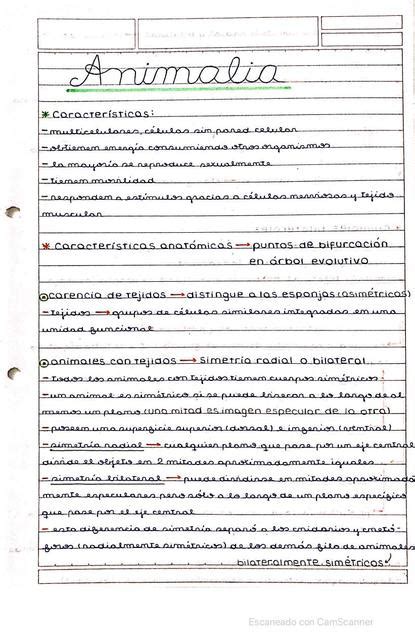 Animalia
* Características:
- multicelulares, células sin pared celular
- obtienen energía consumiendo otros organismos
- la mayoría se reproduce sexualmente
- tienen movilidad
- responden a estímulos gracias a células nerviosas y tejido
muscular
* Características anatómicas → puntos de bifurcación
en árbol evolutivo
carencia de tejidos → distingue a las esponjas (asimétricos)
- tejidos → grupos de células similares integradas en una
unidad funcional
animales con tejidos → simetría radial o bilateral
- todos los animales con tejidos tienen cuerpos simétricos
- un animal es simétrico si se puede bisecar a lo largo de al
menos un plano (una mitad es imagen especular de la otra)
- poseen una superficie superior (dorsal) e inferior (ventral)
- simetría radial → cualquier plano que pase por un eje central
divide el objeto en 2 mitades aproximadamente iguales
- simetría bilateral → puede dividirse en mitades aproximada
mente especulares pero sólo a lo largo de un plano específico
que pase por el eje central
- esta diferencia de simetría separó a los cnidarios y ctenó-
foros (radialmente simétricos) de los demás filo de animales
bilateralmente simétricos
Escaneado con CamScanner